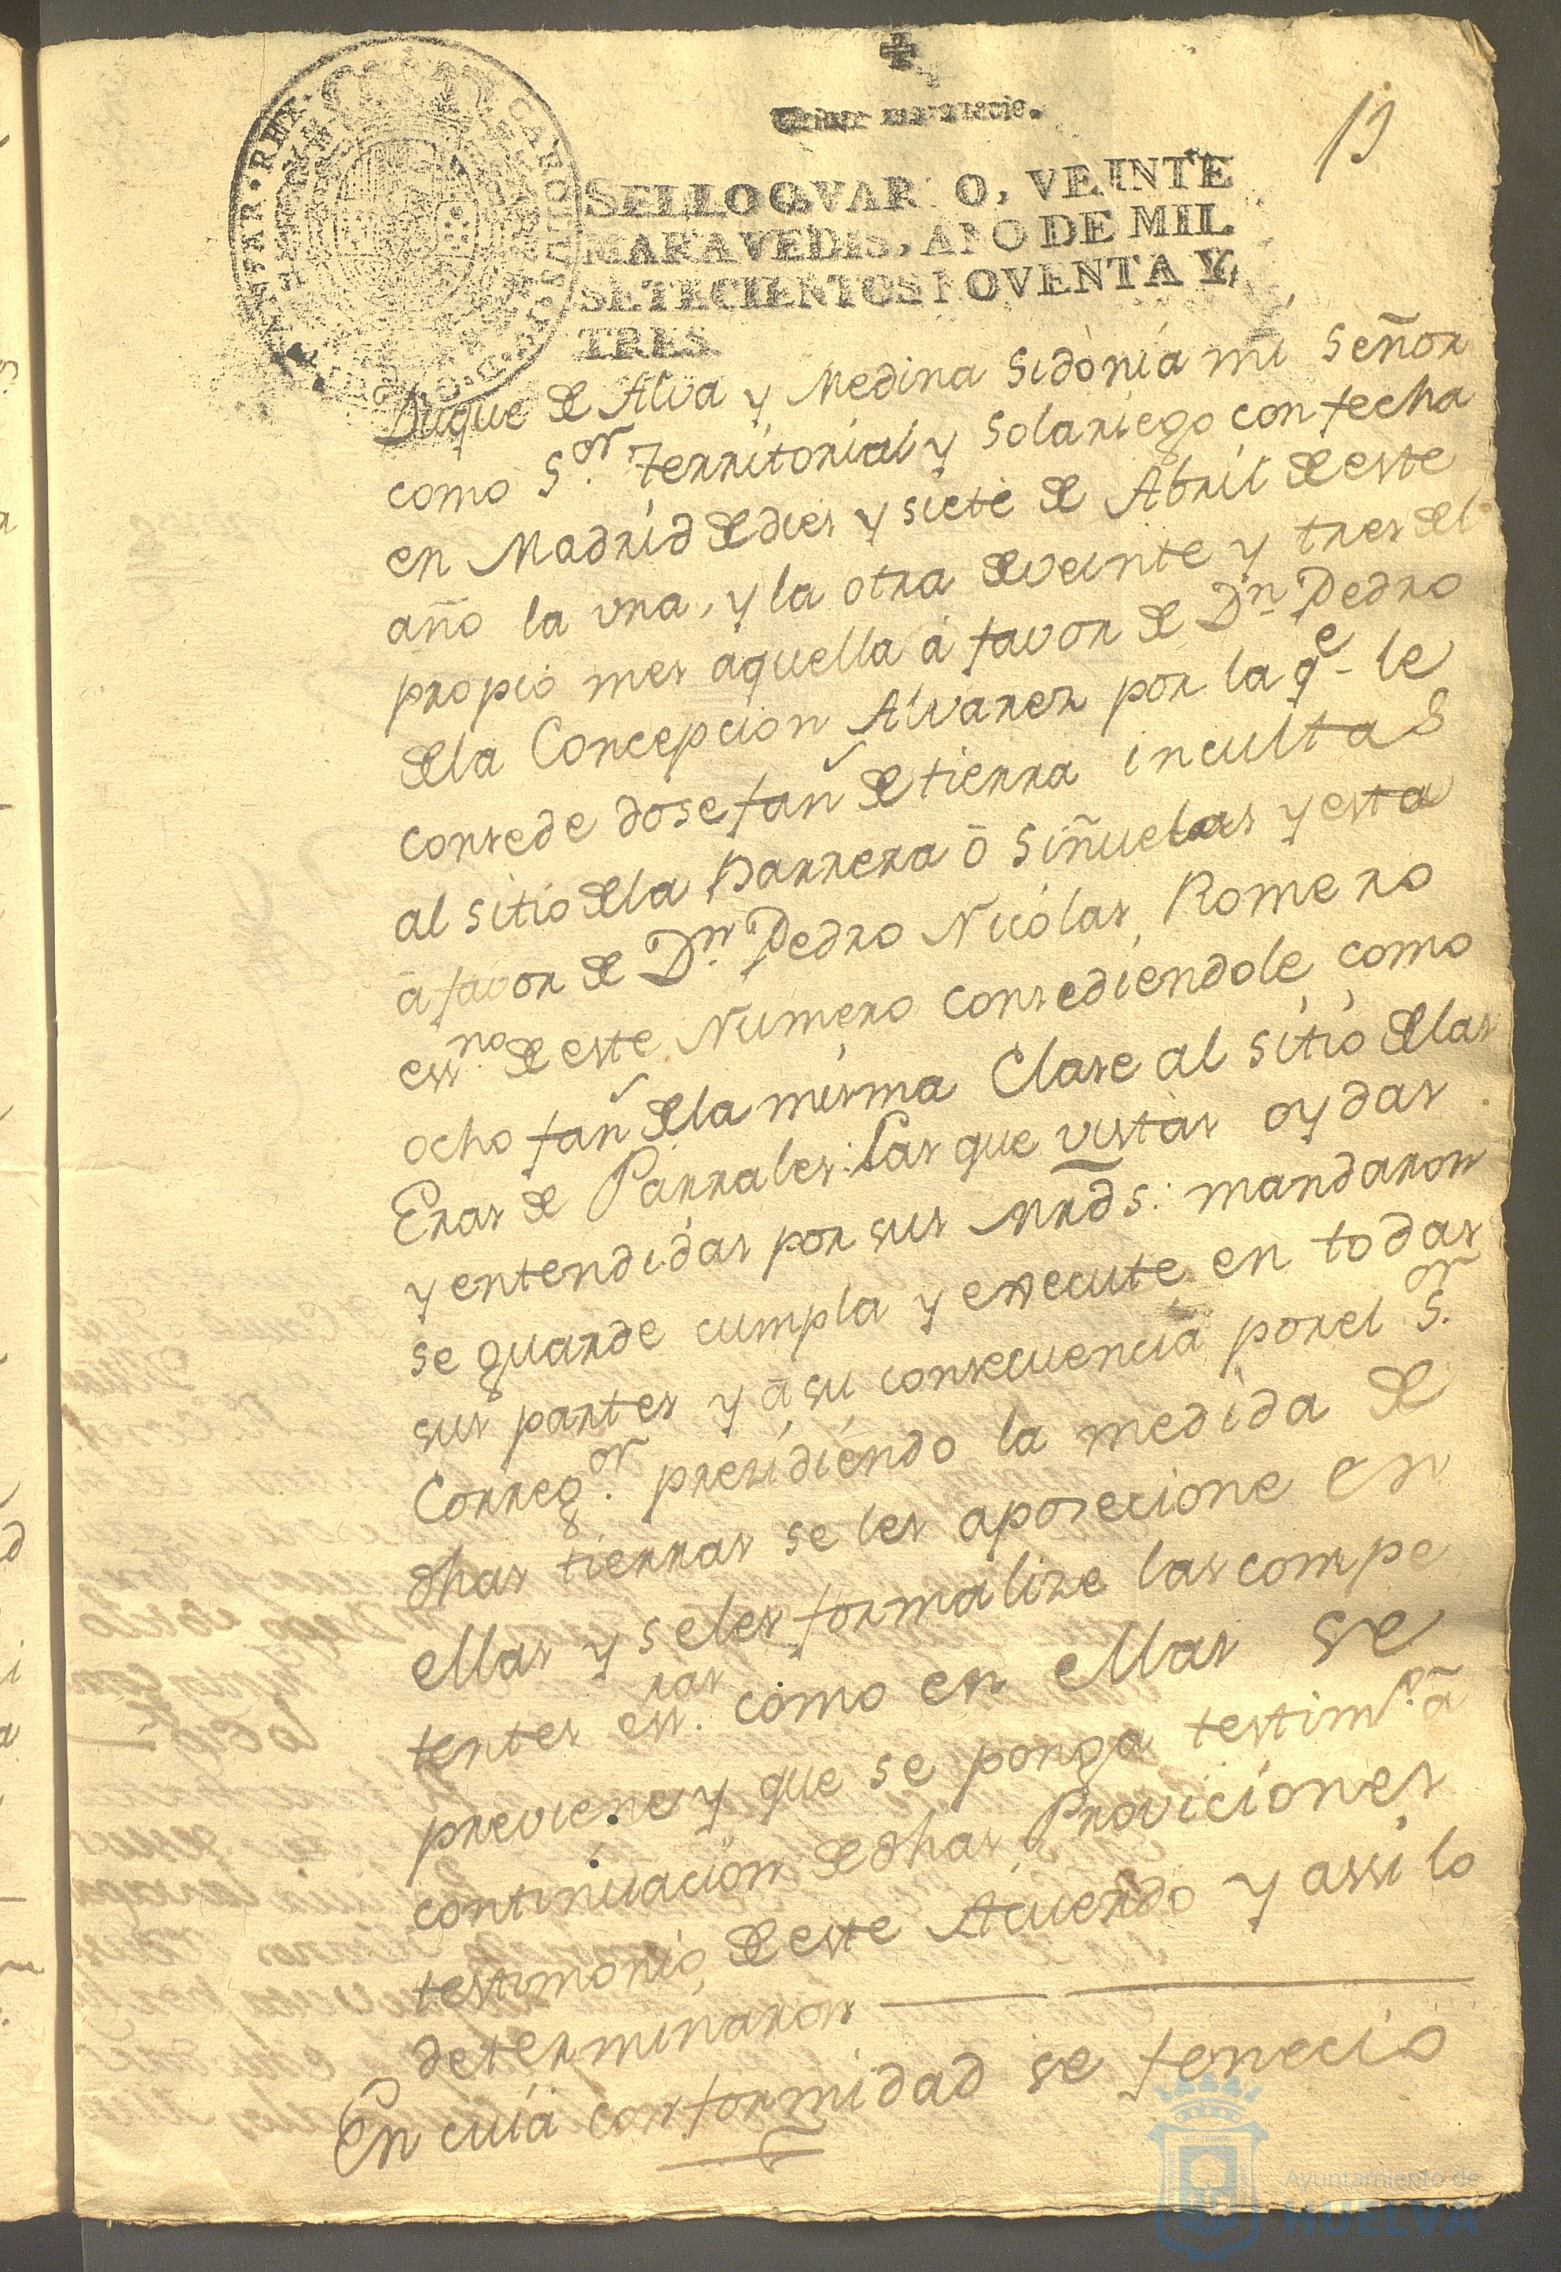 Veinte maravedis.
19
SELLO QVARTO, VEINTE
MARAVEDIS, AÑO DE MIL
SETECIENTOS NOVENTA Y
TRES.
Duque de Alva y Medina Sidonia mi Señor
como S.or Territorial y Solariego con fecha
en Madrid de dies y siete de Abril de este
año la una, y la otra de veinte y tres del
propio mes aquella á favor de D.n Pedro
de la Concepcion Alvarez por la q.e le
consede dose fan.s de tierra incultas
al sitio de la Parrera ō Siñuelas y esta
ā favor de D.n Pedro Nicolas Romero
ess.no de este Numero consediendole como
ocho fan.s de la misma Clase al sitio de las
Eras de Parrales: Las que vistas oydas
y entendidas por sus Mrds. mandaron
se guarde cumpla y execute en todas
sus partes y ā su consecuencia por el S.or
Correg.or presidiendo la medida de
dhas tierras se les aposecione en
ellas y se les formalize las compe
tentes ess.ras como en ellas se
previene y que se ponga testim.o ā
continuacion de dhas Proviciones
testimonio de este Acuerdo y assi lo
determinaron
En cuia conformidad se fenecio
Ayuntamiento de
HUELVA